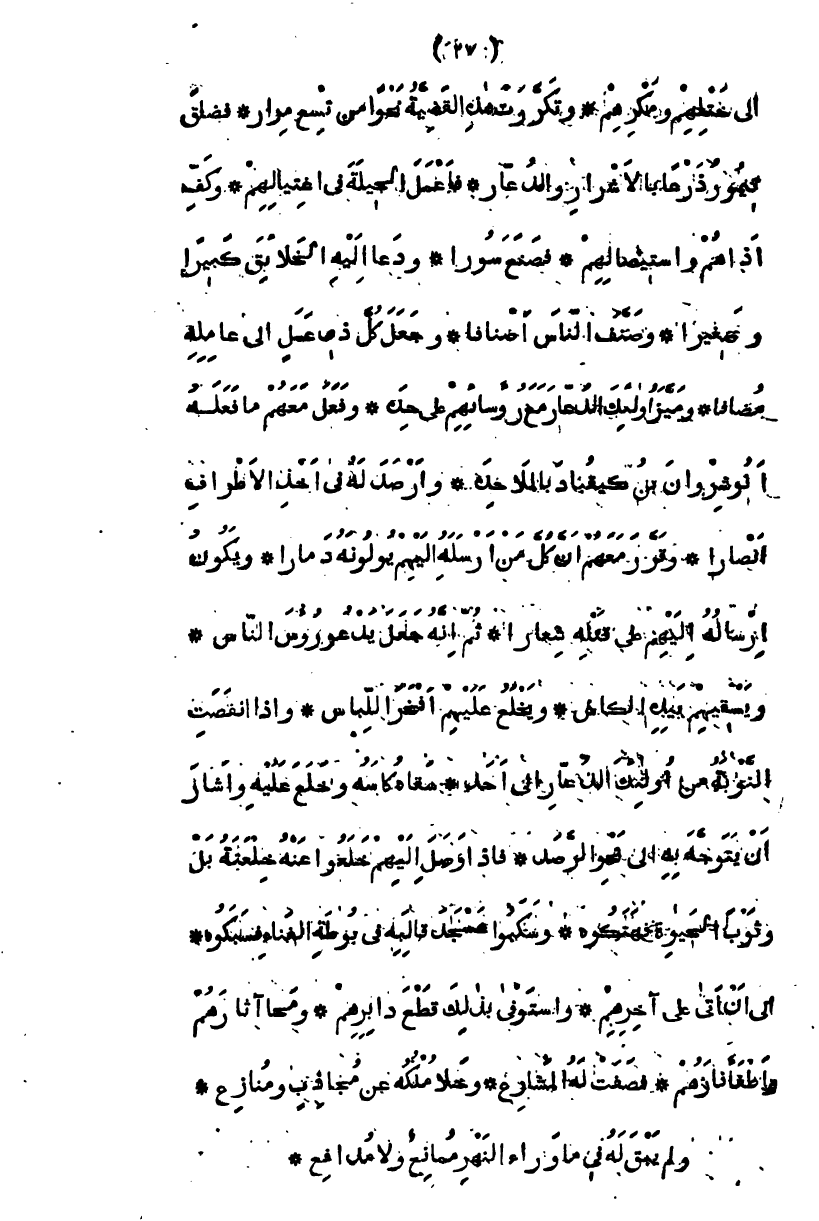 (٢٧)
الى خَتْلِهِمْ ومَكْرِهِمْ * وتَكَرَّرَتْ هٰذِهِ القَضِيَّةُ نَحْوًا من تِسْعِ مِرار * فضاقَ
تيمُورُ ذَرْعًا بالاَشْرارِ والدُعّار * فاَعْمَلَ الحِيلَةَ فى اغْتِيالِهِمْ * وكَفِّ
اَذاهُمْ واستِيْصالِهِمْ * فصَنَعَ سُورا * ودَعا اِلَيْهِ الخَلائِقَ كَبِيرًا
وصَغِيرًا * وصَنَّفَ النّاسَ اَصْنافا * وجَعَلَ كُلَّ ذى عَمَلٍ الى عامِلِهِ
مُضافا * ومَيَّزَ اُولٰئِكَ الدُعّار مَعَ رُوَسائِهِمْ على حِدَه * وفَعَلَ مَعَهُمْ ما فَعَلَــهُ
اَنُوشِرْوانَ بنُ كَيقُبادَ بالمَلاحِدَه * واَرْصَدَ لَهُ فى اَحْدِ الاَطْرافِ
اَنْصارا * وقَرَّرَ مَعَهُمْ اَنَّ كُلَّ مَنْ اَرْسَلَهُ اِلَيْهِمْ يُولُونَهُ دَمارا * ويَكُونُ
اِرْسالُهُ اِلَيْهِمْ على قَتْلِهِ شِعارا * ثُمَّ اِنَّهُ جَعَلَ يَدْعُو رُوسَ النّاس *
ويَسْقِيهِمْ بِيَدِهِ الكاس * ويَخْلَعُ عَلَيْهِمْ اَفْخَرَ اللِّباس * واذا انفَضَتِ
النَوْبَةُ من اُولٰئِكَ الدُعّارِ الى اَحَد * سَقاه كاسَهُ وخَلَعَ عَلَيْهِ واَشارَ
اَنْ يَتَوَجَّهَ بِهِ الى نَحْوِ الرَصَد * فاذا وَصَلَ اِلَيْهِمْ خَلَعُوا عَنْهُ خِلْعَتَهُ بَلْ
وثَوْبَ الحَيوٰةِ فهَتَكُوه * وسَكَبُوا عَسْجَدَ قالَبِه فى بُوطَةِ الفَناءِ فسَبَكُوه *
الى اَنْ اَتٰى على آخِرِهِمْ * واستَوْفٰى بذٰلِكَ قَطْعَ دابِرِهِمْ * ومَحا آثارَهُمْ
واَطْفَأَ نارَهُمْ * فصَفَتْ لَهُ المَشارِعُ * وخَلا مُلْكُه عن مُجاذِبٍ ومُنازِع *
ولم يَبْقَ لَهُ فى ما وَراء النَهْرِ مُمانِعٌ ولا مُدافِع *